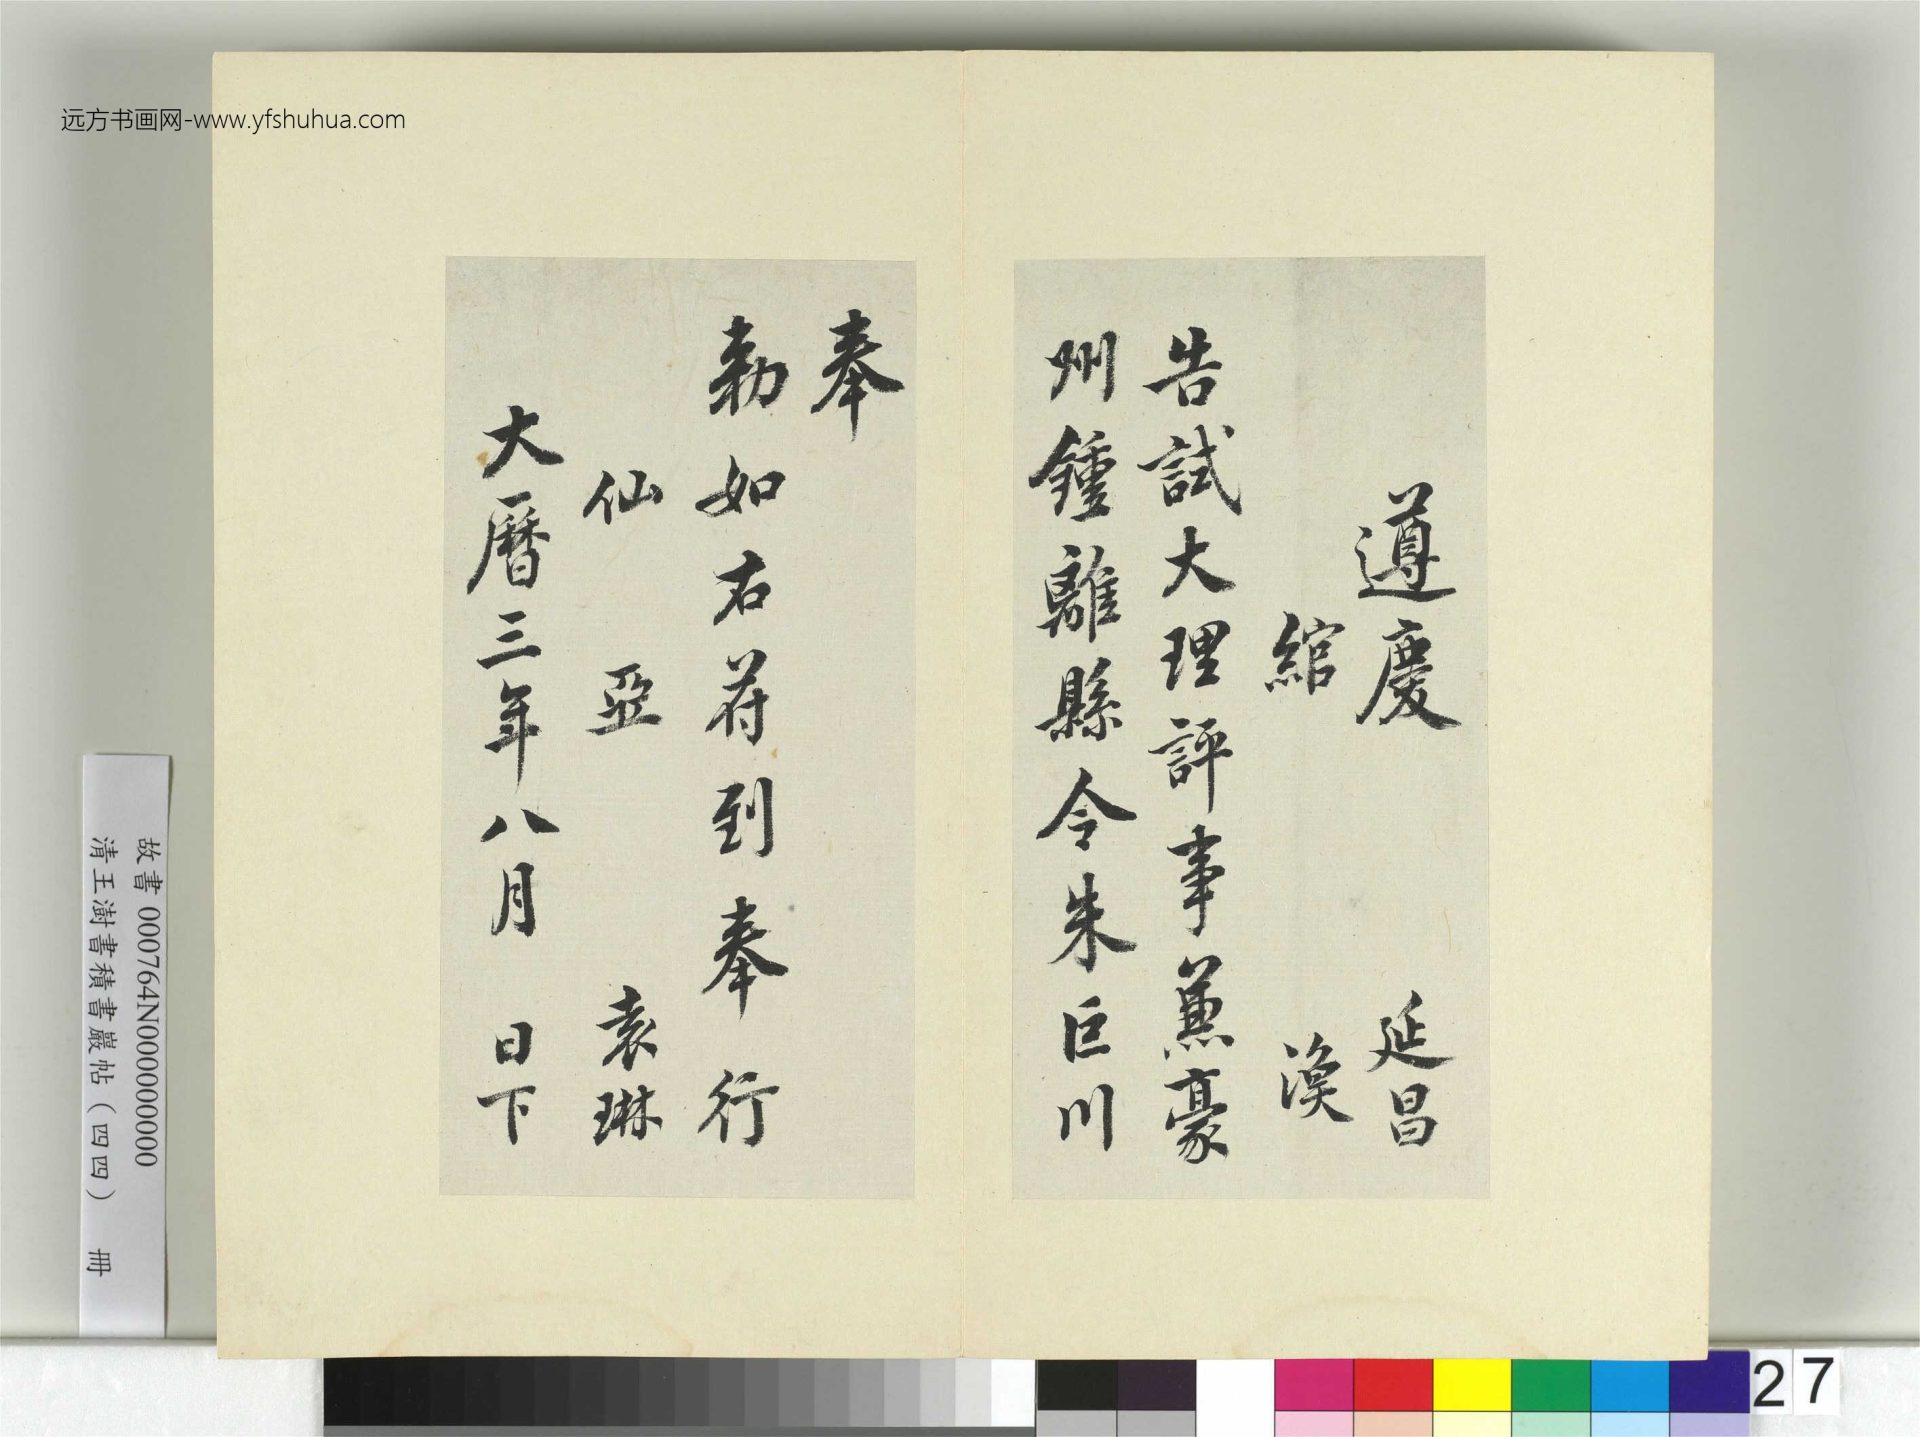 远方书画网-www.yfshuhua.com
遵慶 延昌
綰 渙
告試大理評事兼豪
州鍾離縣令朱巨川
奉
勅如右符到奉行
仙 亞 袁琳
大曆三年八月 日下
故書 000764N000000000
清王澍書積書巖帖（四四） 冊
27